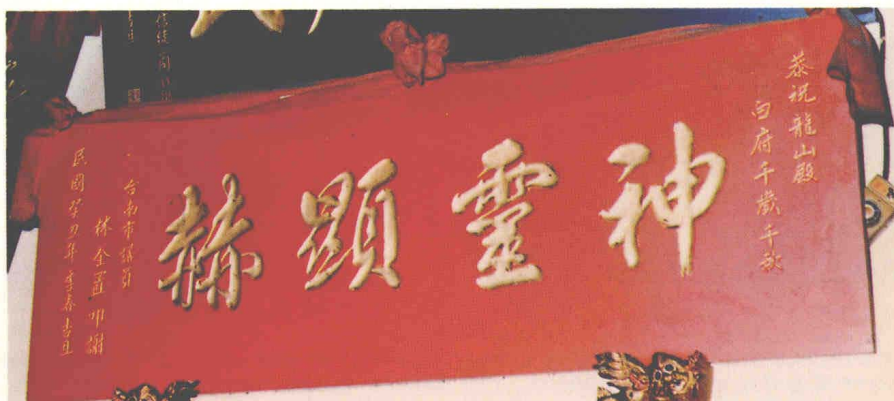 恭祝龍山殿
白府千歲千秋
神靈顯赫
台南市議員
林全置叩謝
民國癸丑年季春吉旦